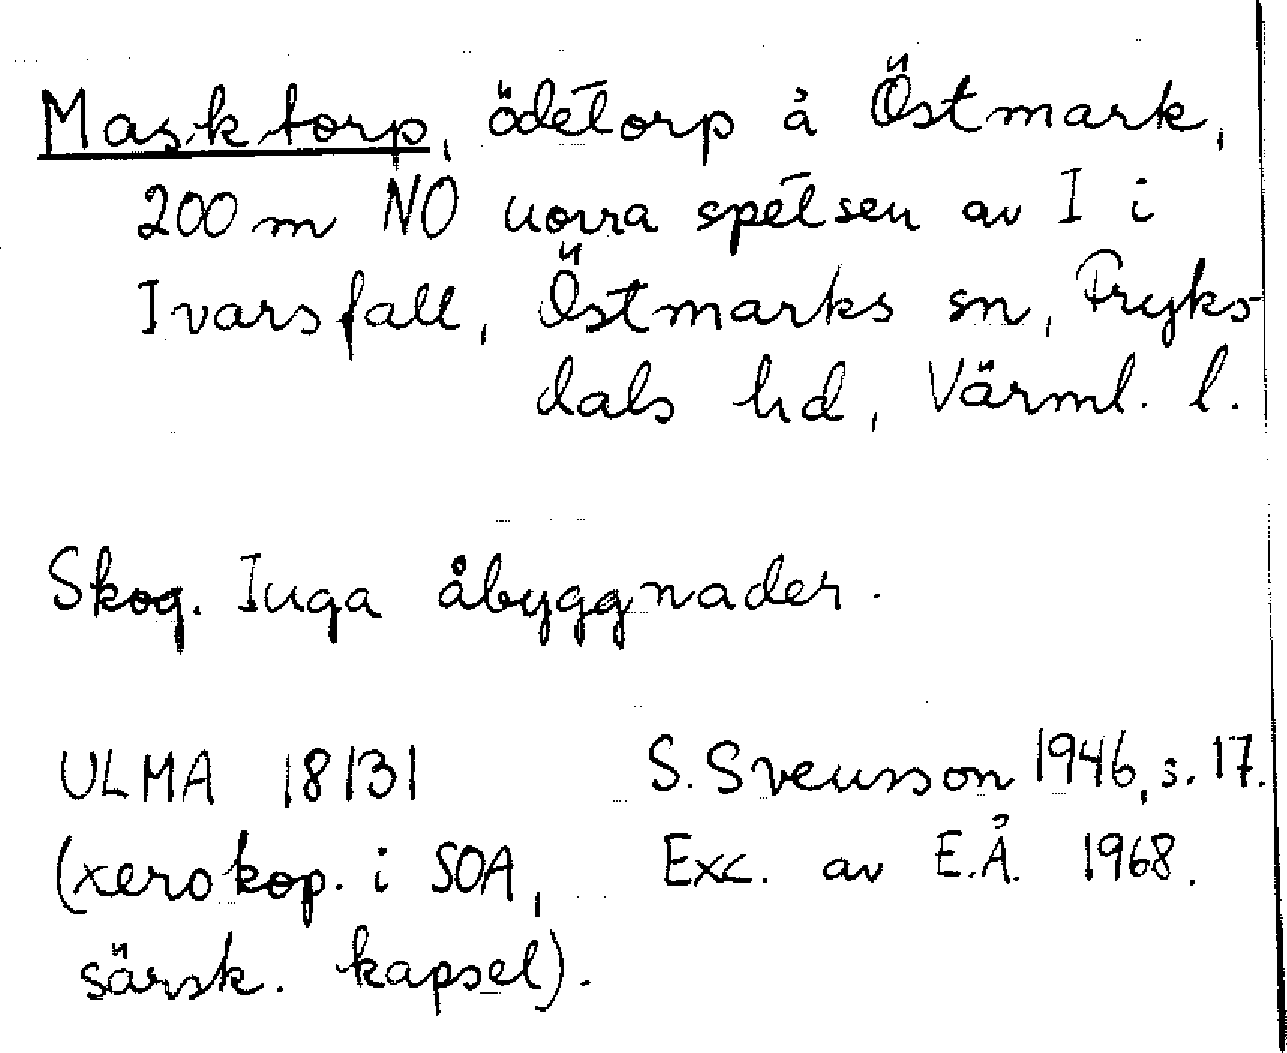 Masktorp, ödetorp å Östmark,
200 m NO norra spetsen av I i
Ivarsfall, Östmarks sn, Fryks-
dals hd, Värml. l.
Skog. Inga åbyggnader.
ULMA 18131
S. Svensson 1946, s. 17.
(xerokop. i SOA,
Exc. av E.Å. 1968.
särsk. kapsel).